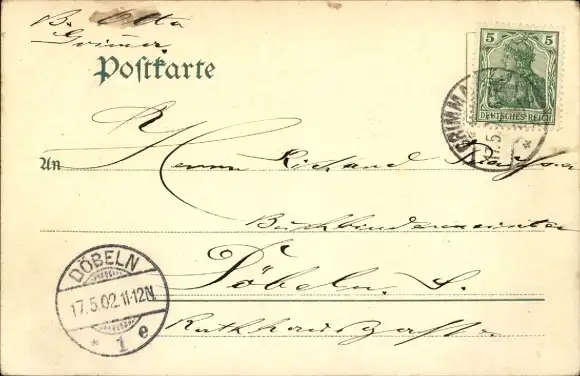 B. Otto
Grimma.
Postkarte
5 5
DEUTSCHES REICH
GRIMMA
17.5.
An Herrn Richard
Buchbindermeister
Döbeln. S.
Rathhausgasse
DÖBELN
17.5.02.11-12N.
* 1 e